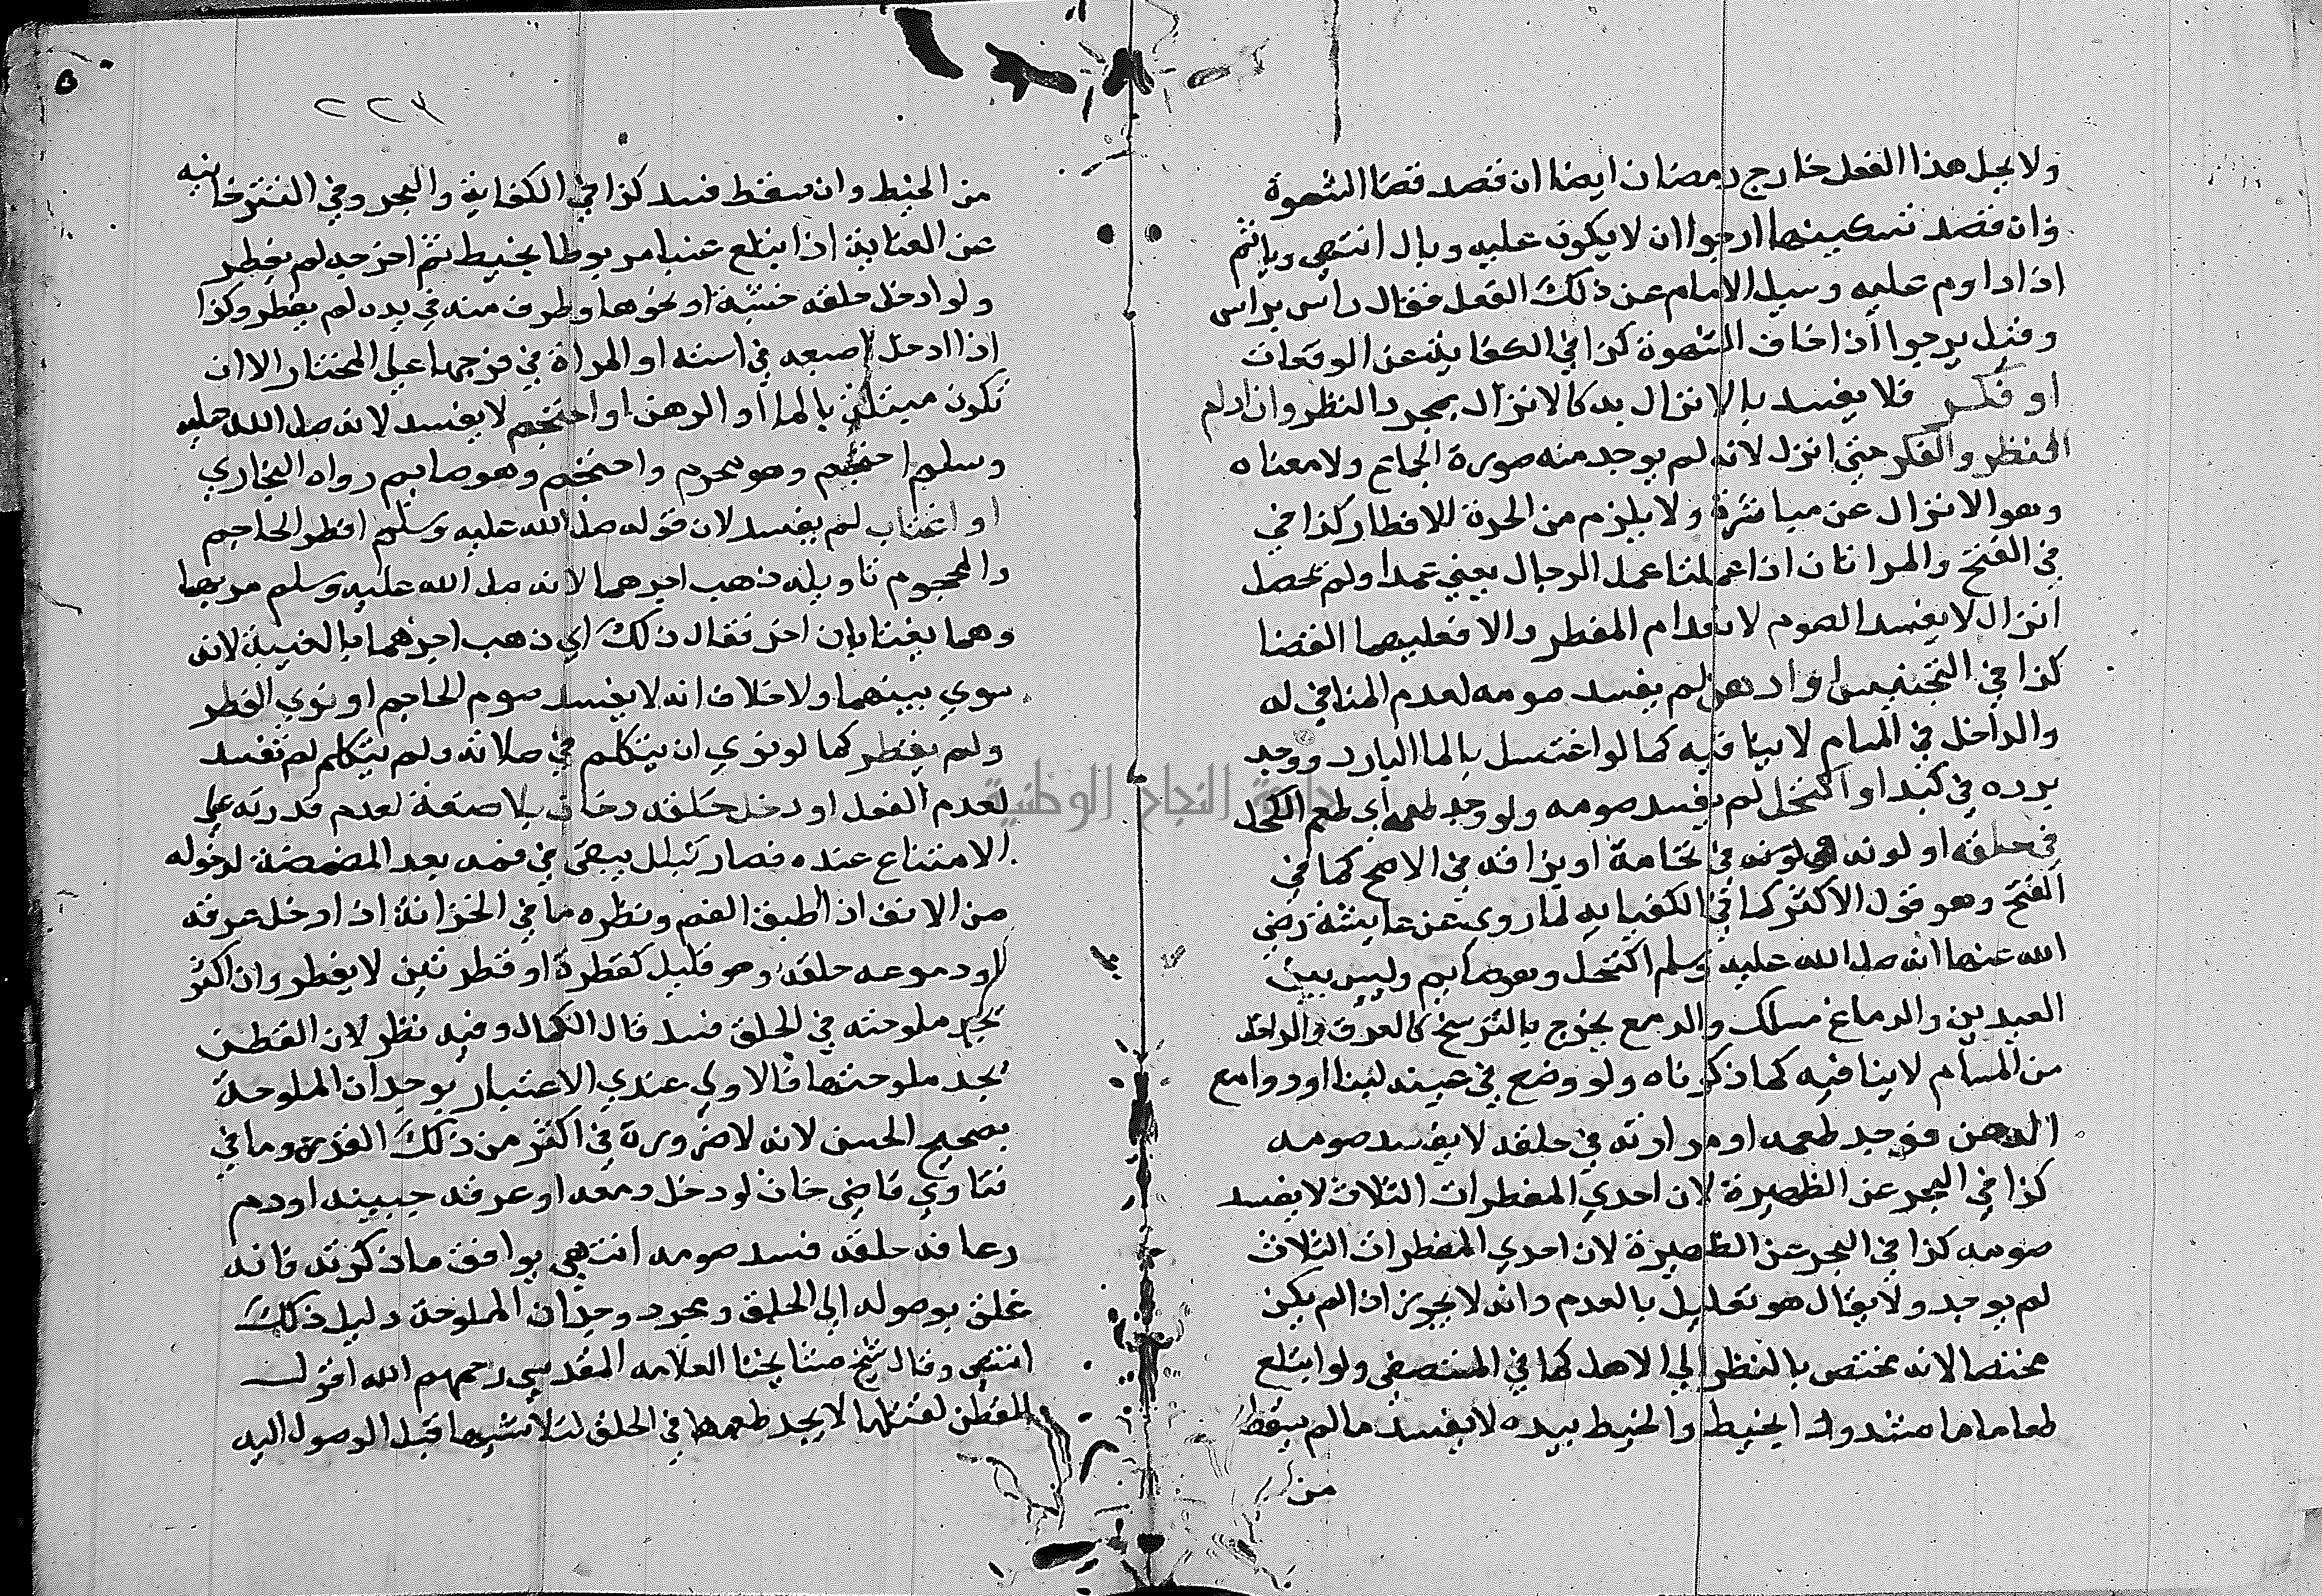 ولا يحل هذا الفعل خارج رمضان ايضا ان قصد قضا الشهوة
وان قصد تسكينها ارجوا ان لا يكون عليه وبال انتهى وياثم
اذا داوم عليه وسيل الامام عن ذلك الفعل فقال راس براس
وقيل يرجوا اذا خاف الشهوة كذا في الكفاية عن الوقعات
او فكر فلا يفسد بالانزال به كالانزال بمجرد النظر وان ادام
النظر والفكر حتى انزل لانه لم يوجد منه صورة الجماع ولا معناه
وهو الانزال عن مباشرة ولا يلزم من الحرمة للافطار كذا في
في الفتح والمراتان اذا عملتا عمل الرجال يعني عمدا ولم تحصل
انزال لا يفسد الصوم لانعدام المفطر والا فعليهما القضا
كذا في التجنيس او ادهن لم يفسد صومه لعدم المنافي له
والداخل في المسام لا ينافيه كما لو اغتسل بالما البارد ووجد
برده في كبد او اكتحل لم يفسد صومه ولو وجد طعمه اي طعم الكحل
في حلقه او لونه اي لونه في نخامة او بزاقه في الاصح كما في
الفتح وهو قول الاكثر كما في الكفايه لما روي عن عايشة رضي
الله عنها انه صلى الله عليه وسلم اكتحل وهو صايم وليس بين
العينين والدماغ مسلك والدمع يخرج بالترشح كالعرق والداخل
من المسام لا ينافيه كما ذكرناه ولو وضع في عينه لبنا او دوا مع
الدهن فوجد طعمه او مرارته في حلقه لا يفسد صومه
كذا في البحر عن الظهيرة لان احدي المفطرات الثلاث لا يفسد
صومه كذا في البحر عن الظهيرة لان احدي المفطرات الثلاث
لم يوجد ولا يقال هو تعليل بالعدم وانه لا يجوز اذا لم يكن
مختصا لانه مختص بالنظر الي الاهل كما في المستصفى ولو ابتلع
طعاما ما مشدوا بخيط والخيط بيده لا يفسد ما لم يسقط
من
٢٢٧
من الخيط وان سقط فسد كذا في الكفاية والبحر وفي التترخانيه
عن العناية اذا ابتلع عنبا مربوطا بخيط ثم اخرجه لم يفطر
ولو ادخل حلقه خشبة او نحوها وطرف منه في يده لم يفطر وكذا
اذا ادخل اصبعه في استه او المراة في فرجها على المختار الا ان
تكون مبتلة بالما او الدهن او احتجم لا يفسد لانه صلى الله عليه
وسلم احتجم وهو محرم واحتجم وهو صايم رواه البخاري
او اغتاب لم يفسد لان قوله صلى الله عليه وسلم افطر الحاجم
والمحجوم تاويله ذهب اجرهما لانه صلى الله عليه وسلم مر بهما
وهما يغتابان اخر فقال ذلك اي ذهب اجرهما بالغيبة لانه
سوي بينهما ولا خلاف انه لا يفسد صوم الحاجم او نوي الفطر
ولم يفطر كما لو نوي ان يتكلم في صلاته ولم يتكلم لم تفسد
لعدم الفعل او دخل حلقه دخان بلا صنعة لعدم قدرته على
الامتناع عنده فصار كبلل يبقى في فمه بعد المضمضة لدخوله
من الانف اذا اطبق الفم ونظره ما في الخزانة اذا دخل عرقه
او دموعه حلقه وهو قليل كقطرة او قطرتين لا يفطر وان اكثر
يجد ملوحته في الحلق فسد قال الكمال وفيه نظر لان القطرة
يجد ملوحتها فالاولى عندي الاعتبار بوجدان الملوحة
بصحيح الحس لانه لا ضرورة في اكثر من ذلك القدر وما في
فتاوي قاضي خان لو دخل دمعه او عرقه جبينه او دم
رعافه حلقه فسد صومه انتهي يوافق ما ذكرته فانه
علق بوصوله الي الحلق ومجرد وجدان الملوحة دليل ذلك
انتهى وقال شيخ مشايخنا العلامه المقدسي رحمهم الله اقول
القطرة لقلتها لا يجد طعمها في الحلق لتلاشيها قبل الوصول اليه
جامعة النجاح الوطنية